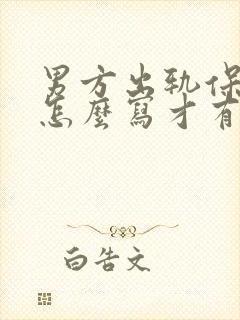 男方出轨保
怎麼寫才有
白告文